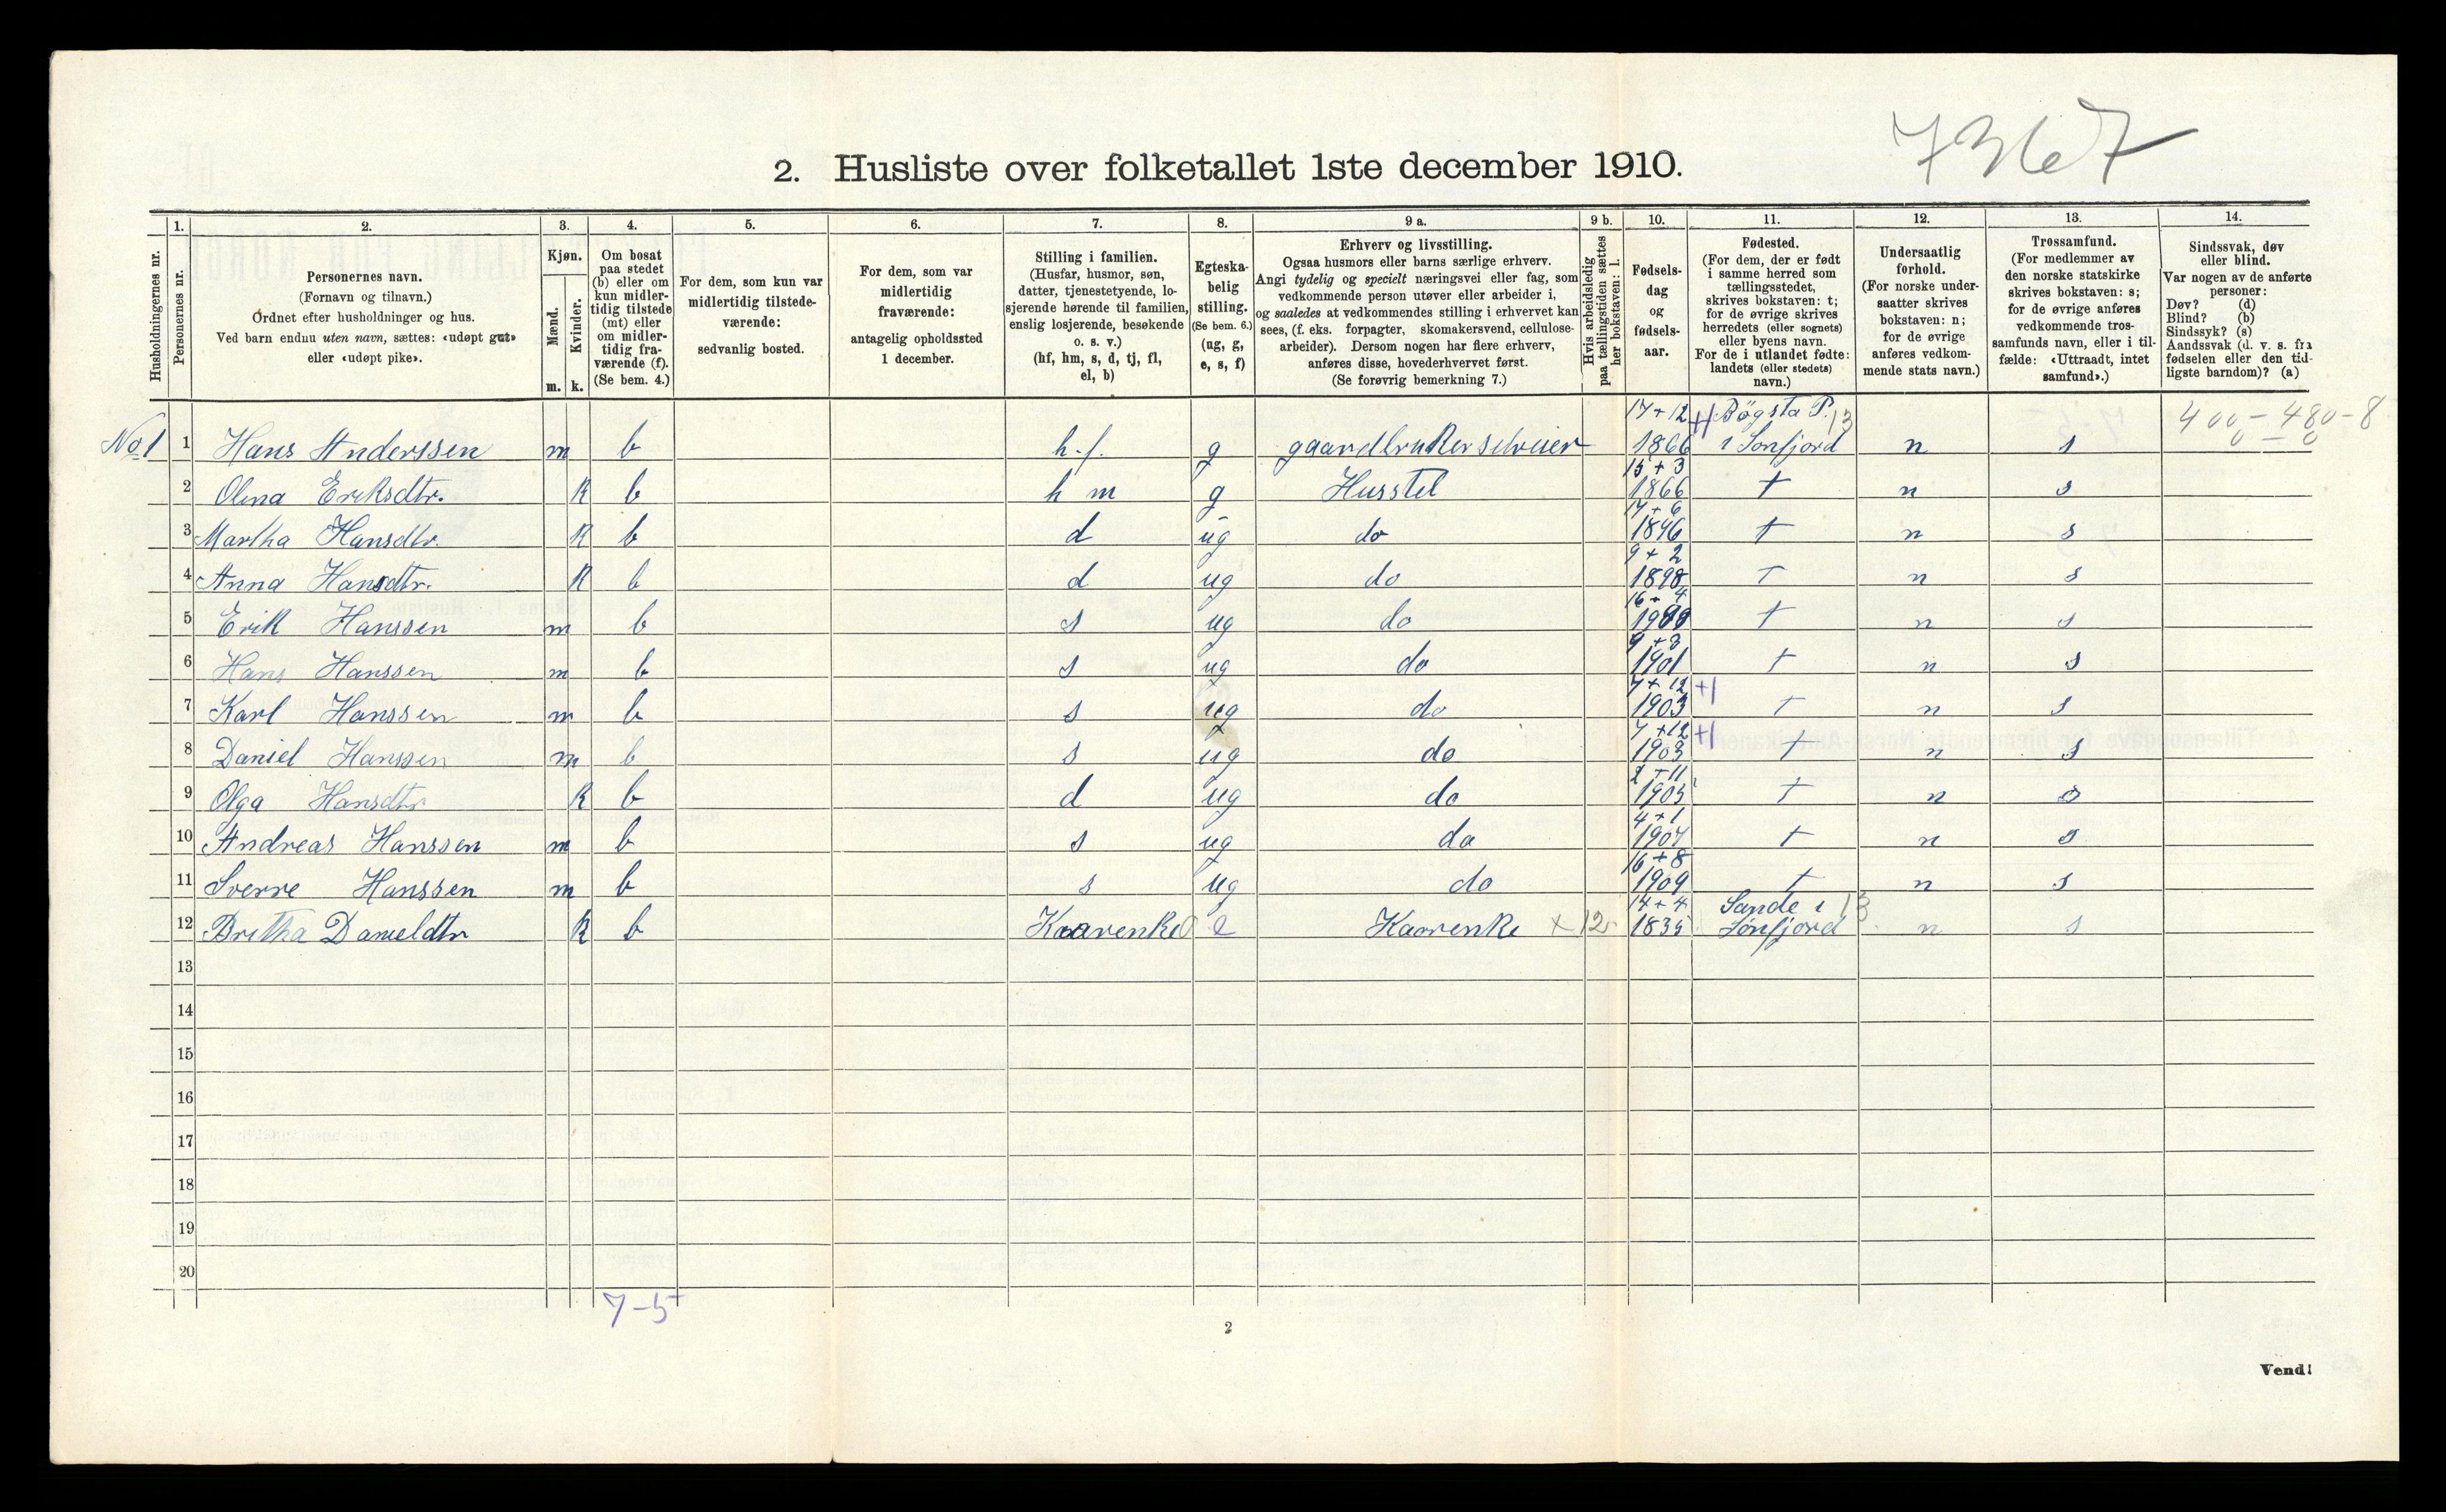 7367
2. Husliste over folketallet 1ste december 1910.
1. 2. 3. 4. 5. 6. 7. 8. 9 a. 9 b. 10. 11. 12. 13. 14.
Husholdningernes nr.
Personernes nr.
Personernes navn.
(Fornavn og tilnavn.)
Ordnet efter husholdninger og hus.
Ved barn endnu uten navn, sættes: «udøpt gut»
eller «udøpt pike».
Kjøn.
Mænd.
Kvinder.
m. k.
Om bosat
paa stedet
(b) eller om
kun midler-
tidig tilstede
(mt) eller
om midler-
tidig fra-
værende (f).
(Se bem. 4.)
For dem, som kun var
midlertidig tilstede-
værende:
sedvanlig bosted.
For dem, som var
midlertidig
fraværende:
antagelig opholdssted
1 december.
Stilling i familien.
(Husfar, husmor, søn,
datter, tjenestetyende, lo-
sjerende hørende til familien,
enslig losjerende, besøkende
o. s. v.)
(hf, hm, s, d, tj, fl,
el, b)
Egteska-
belig
stilling.
(Se bem. 6.)
(ug, g,
e, s, f)
Erhverv og livsstilling.
Ogsaa husmors eller barns særlige erhverv.
Angi tydelig og specielt næringsvei eller fag, som
vedkommende person utøver eller arbeider i,
og saaledes at vedkommendes stilling i erhvervet kan
sees, (f. eks. forpagter, skomakersvend, cellulose-
arbeider). Dersom nogen har flere erhverv,
anføres disse, hovederhvervet først.
(Se forøvrig bemerkning 7.)
Hvis arbeidsledig
paa tællingstiden sættes
her bokstaven: l.
Fødsels-
dag
og
fødsels-
aar.
Fødested.
(For dem, der er født
i samme herred som
tællingsstedet,
skrives bokstaven: t;
for de øvrige skrives
herredets (eller sognets)
eller byens navn.
For de i utlandet fødte:
landets (eller stedets)
navn.)
Undersaatlig
forhold.
(For norske under-
saatter skrives
bokstaven: n;
for de øvrige
anføres vedkom-
mende stats navn.)
Trossamfund.
(For medlemmer av
den norske statskirke
skrives bokstaven: s;
for de øvrige anføres
vedkommende tros-
samfunds navn, eller i til-
fælde: «Uttraadt, intet
samfund».)
Sindssvak, døv
eller blind.
Var nogen av de anførte
personer:
Døv? (d)
Blind? (b)
Sindssyk? (s)
Aandssvak (d. v. s. fra
fødselen eller den tid-
ligste barndom)? (a)
17+12 Bøgsta P. 13 400-480-8
No 1 1 Hans Anderssen m b h.f. g gaardbruker selveier 1866 i Sønfjord n s
15+3
2 Olina Eriksdtr. K b h m g Husstel 1866 t n s
17+6
3 Martha Hansdtr. K b d ug do 1896 t n s
9+2
4 Anna Hansdtr. K b d ug do 1898 t n s
16+4
5 Erik Hanssen m b s ug do t n s
9+8
6 Hans Hanssen m b s ug do 1901 t n s
7+12 +1
7 Karl Hanssen m b s ug do 1903 t n s
7+12 +1
8 Daniel Hanssen m b s ug do 1903 t n s
2+11
9 Olga Hansdtr K b d ug do 1905 t n s
4+1
10 Andreas Hanssen m b s ug do 1907 t n s
16+8
11 Sverre Hanssen m b s ug do 1909 t n s
14+4 Sande i 13
12 Britha Danieldtr K b Kaarenke e Kaarenke x 12 1835 Sønfjord n s
13
14
15
16
17
18
19
20
7-5
2
Vend!